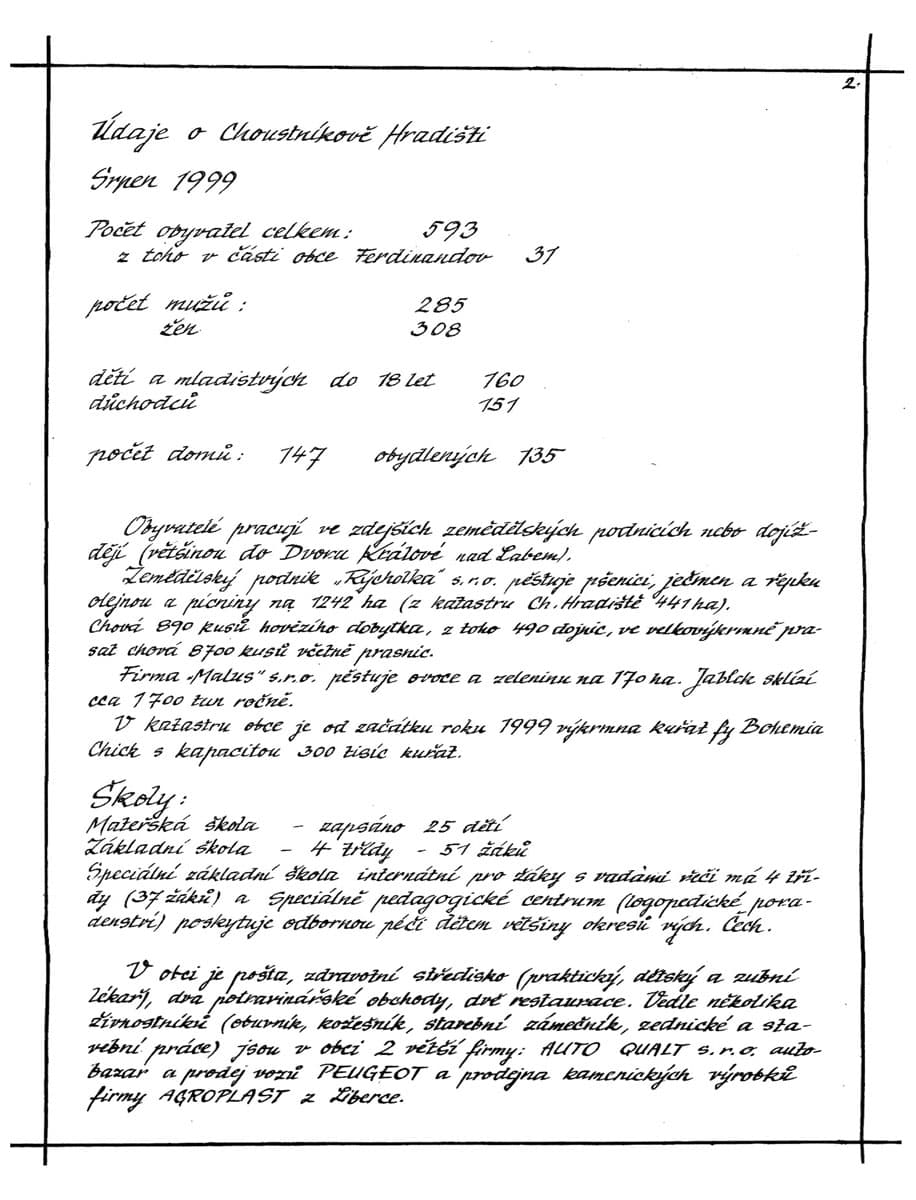 2.
Údaje o Choustníkově Hradišti
Srpen 1999
Počet obyvatel celkem: 593
z toho v části obce Ferdinandov 31
počet mužů: 285
žen 308
dětí a mladistvých do 18 let 160
důchodců 151
počet domů: 147 obydlených 135
Obyvatelé pracují ve zdejších zemědělských podnicích nebo dojíž-
dějí (většinou do Dvora Králové nad Labem).
Zemědělský podnik „Rýcholka" s.r.o. pěstuje pšenici, ječmen a řepku
olejnou a pícniny na 1242 ha (z katastru Ch. Hradiště 441 ha).
Chová 890 kusů hovězího dobytka, z toho 490 dojnic, ve velkovýkrmně pra-
sat chová 8700 kusů včetně prasnic.
Firma „Malus" s.r.o. pěstuje ovoce a zeleninu na 170 ha. Jablek sklízí
cca 1700 tun ročně.
V katastru obce je od začátku roku 1999 výkrmna kuřat fy Bohemia
Chick s kapacitou 300 tisíc kuřat.
Školy:
Mateřská škola - zapsáno 25 dětí
Základní škola - 4 třídy - 51 žáků
Speciální základní škola internátní pro žáky s vadami řeči má 4 tří-
dy (37 žáků) a Speciálně pedagogické centrum (logopedické pora-
denství) poskytuje odbornou péči dětem většiny okresů vých. Čech.
V obci je pošta, zdravotní středisko (praktický, dětský a zubní
lékař), dva potravinářské obchody, dvě restaurace. Vedle několika
živnostníků (obuvník, kožešník, stavební zámečník, zednické a sta-
vební práce) jsou v obci 2 větší firmy: AUTO QUALT s.r.o. auto-
bazar a prodej vozů PEUGEOT a prodejna kamenických výrobků
firmy AGROPLAST z Liberce.